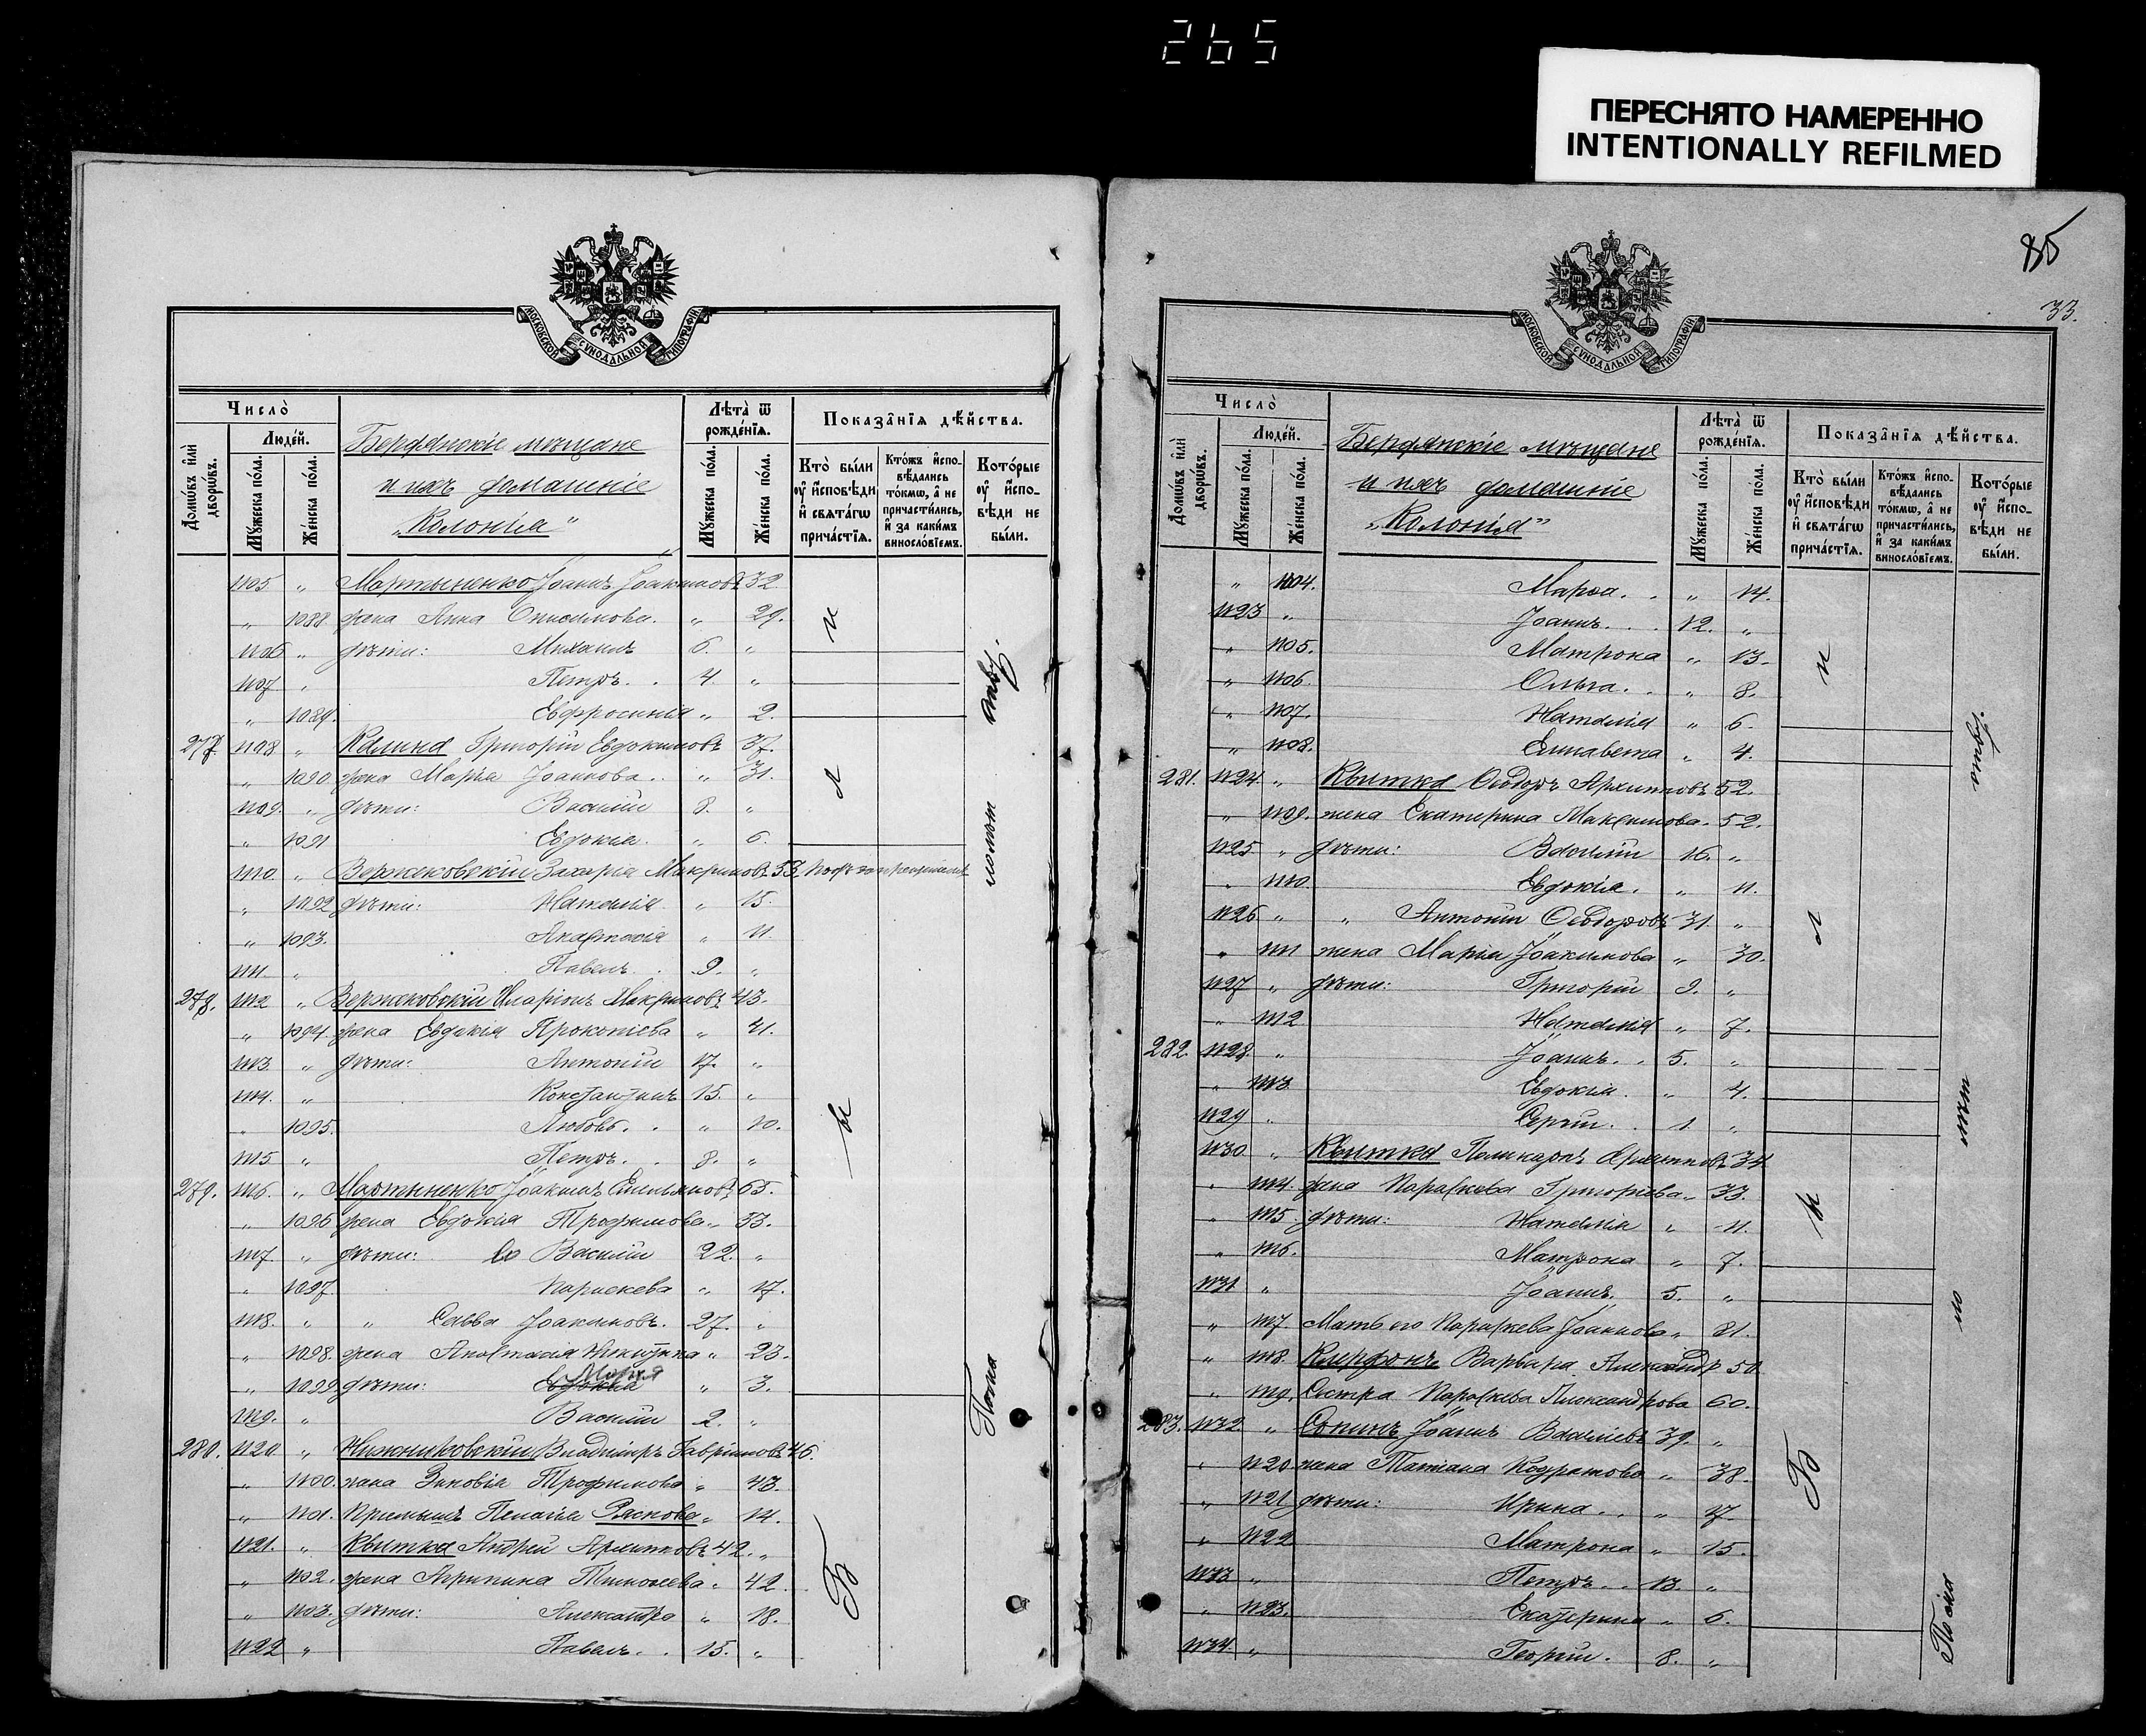 265
ПЕРЕСНЯТО НАМЕРЕННО
INTENTIONALLY REFILMED
МОСКОВСКОЙ СѴНОДАЛЬНОЙ ТИПОГРАФІИ
Число̀
Домѡ́въ и҆лѝ дворѡ́въ.
Люде́й.
Мꙋ́жеска по́ла.
Же́нска по́ла.
Бердянскіе мѣщане
и ихъ домашніе
„Колонія"
Лѣ́та ѿ рожде́нїя.
Мꙋ́жеска по́ла.
Же́нска по́ла.
Показа̑нїѧ дѣ́йства.
Кто̀ бы́ли ᲂу҆ и҆́сповѣди и҆ свѧта́гѡ прича́стїѧ.
Кто́жъ и҆сповѣ́дались то́кмѡ, а҆ не причасти́лись, и҆ за каки́мъ виносло́вїемъ.
Кото́рые ᲂу҆ и҆́сповѣди не бы́ли.
1105. „ Мартыненко Іоаннъ Іоакимовъ 32
„ 1088 жена Анна Онисимова. „ 29.
1106 „ дѣти: Михаилъ 6. „
1107 „ Петръ. . 4. „
„ 1089. Евфросинія „ 2.
277. 1108 „ Калина Григорій Евдокимовъ 37.
„ 1090. жена Марія Іоаннова. . „ 31.
1109. „ дѣти: Василій 8. „
„ 1091 Евдокія. „ 6.
1110. „ Вержиковскій Захарія Макримовъ 53
„ 1092 дѣти: Наталія „ 15.
„ 1093. Анастасія „ 11.
1111. „ Павелъ. . 9. „
278. 1112 „ Вержиковскій Иларіонъ Макримовъ 43.
„ 1094. жена Евдокія Прокопіева „ 41.
1113 „ дѣти: Антоній 17. „
1114. „ Константинъ 15. „
„ 1095. Любовь. . „ 10.
1115 „ Петръ. . 8. „
279. 1116. „ Мартыненко Іоакимъ Емельяновъ 65.
„ 1096 жена Евдокія Трофимова „ 53.
1117. „ дѣти: Василій 22. „
„ 1097. Параскева „ 17.
1118. „ „ Савва Іоакимовъ. 27. „
„ 1098. жена Анастасія Никитина „ 23.
„ 1099 дѣти: Марія „ 3.
1119. „ Василій 2. „
280. 1120 „ Нижниковскій Владиміръ Гавріиловъ 46.
„ 1100. жена Зиновія Трофимова „ 43.
„ 1101. Пріемышъ Пелагія Ряснова „ 14.
1121. „ Квитка Андрей Архиповъ 42. „
„ 1102. жена Агрипина Тимофеева „ 42.
„ 1103. дѣти: Александра „ 18.
1122 „ Павелъ. . 15. „
85
33.
МОСКОВСКОЙ СѴНОДАЛЬНОЙ ТИПОГРАФІИ
Число̀
Домѡ́въ и҆лѝ дворѡ́въ.
Люде́й.
Мꙋ́жеска по́ла.
Же́нска по́ла.
Бердянскіе мѣщане
и ихъ домашніе
„Колонія"
Лѣ́та ѿ рожде́нїя.
Мꙋ́жеска по́ла.
Же́нска по́ла.
Показа̑нїѧ дѣ́йства.
Кто̀ бы́ли ᲂу҆ и҆́сповѣди и҆ свѧта́гѡ прича́стїѧ.
Кто́жъ и҆сповѣ́дались то́кмѡ, а҆ не причасти́лись, и҆ за каки́мъ виносло́вїемъ.
Кото́рые ᲂу҆ и҆́сповѣди не бы́ли.
„ 1104. Марѳа. . „ 14.
1123 „ Іоаннъ. . . 12. „
„ 1105. Матрона „ 13.
„ 1106. Ольга. . „ 8.
„ 1107. Наталія „ 6.
„ 1108. Елисавета „ 4.
281. 1124 „ Квитка Ѳеодоръ Архиповъ 52.
„ 1109. жена Екатерина Максимова. 52.
1125 „ дѣти: Василій 16. „
„ 1110 Евдокія. „ 11.
1126 „ „ Антоній Ѳеодоровъ 31. „
„ 1111 жена Марія Іоакимова „ 30.
1127 „ дѣти: Григорій 9. „
„ 1112 Наталія „ 7.
282. 1128. „ Іоаннъ. . 5. „
„ 1113 Евдокія. „ 4.
1129 „ Сергій. . 1. „
1130 „ Квитка Поликарпъ Архиповъ 34
„ 1114. жена Параскева Григорьева „ 33.
„ 1115. дѣти: Наталія „ 11.
„ 1116. Матрона „ 7.
1131 „ Іоаннъ. 5. „
„ 1117 Мать его Параскева Іоаннова „ 81.
„ 1118 Варвара Александр 50.
„ 1119. Сестра Параскева Александрова 60.
283. 1132. „ Сокинъ Іоаннъ Васильевъ 39. „
„ 1120 жена Татіана Кодратова „ 38.
„ 1121 дѣти: Ирина . . „ 17.
„ 1122 Матрона „ 15.
1133 „ Петръ. . 13. „
„ 1123. Екатерина „ 6.
1134 „ Георгій. 8. „